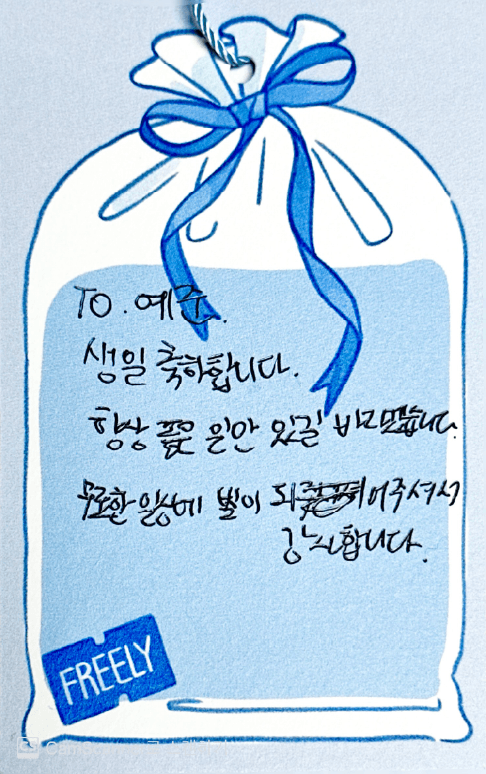 TO. 예준.
생일 축하합니다.
항상 좋은 일만 있길 바라겠습니다.
무료한 일상에 별이 되어주셔서
감사합니다.
FREELY